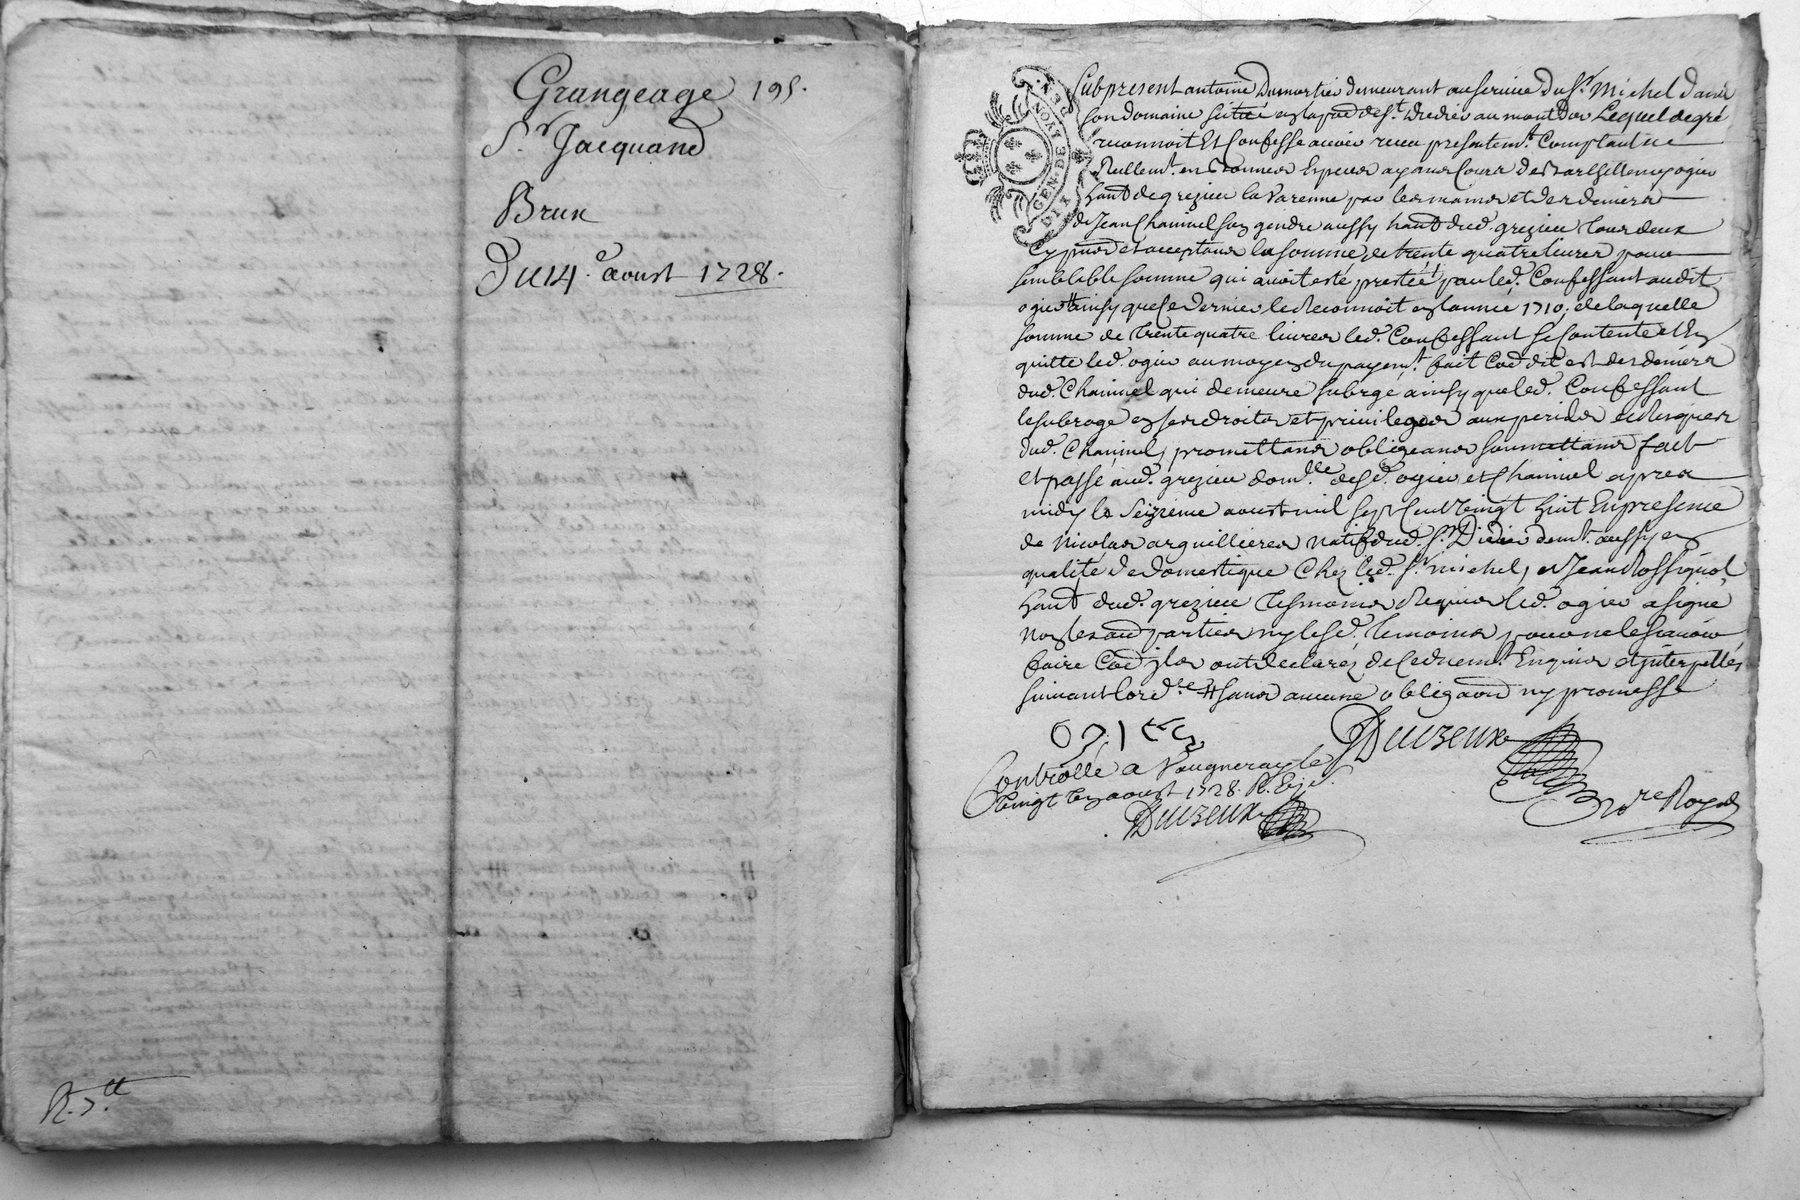 Grangeage 195.
Sr Jacquand
Brun
Du 14e aoust 1728.
R. 5tt
GEN. DE LYON
DIX DEN.
fut present antoine Dumortier demeurant au service du Sr Michel dans
son domaine scitué en la parr de St Didier au mont Dor Lequel de gré
reconnoit Et Confesse avoir receu presentemt Comptant
Reellemt en bonnes Especes ayans Cours de Barthellemy ogier
habt de grezieu la Varenne par les mains et des deniers
de Jean Chaninel son gendre aussy habt dud. grezieu tous deux
Cy pnts et acceptans la somme de trente quatre livres pour
semblable somme qui avoit esté prestée par led. Confessant audit
ogier ainsy que ce dernier le Reconnoit en lannée 1710, de laquelle
somme de trente quatre livres led. Confessant se Contente et En
quitte led. ogier au moyen du payemt fait Coe dit est des deniers
dud. Chaninel qui demeure subrogé ainsy que led. Confessant
le subroge en ses droits et privileges aux perils et Risques
dud. Chaninel, promettans obligeans soumettans fait
et passé aud. grezieu dom.lle desd. ogier et Chaninel apres
midy le Seizieme aoust mil sept Cent Vingt huit En presence
de Nicolas arquillieres Natif dud. St Didier demt aussy en
qualité de domestique Chez led. Sr michel, et Jean Rossignol
habt dud. grezieu tesmoins Requis led. ogier a signé
Non les autres parties ny lesd. temoins pour ne le sçavoir
faire Coe ils ont declaré de ce duemt Enquis et interpellés
suivant lord.ce sans aucune obligaon ny promesse
ogier
Duizeux
Controlle a Vaugneray le
Vingt aoust 1728. R.
Duizeux
No.re Royal